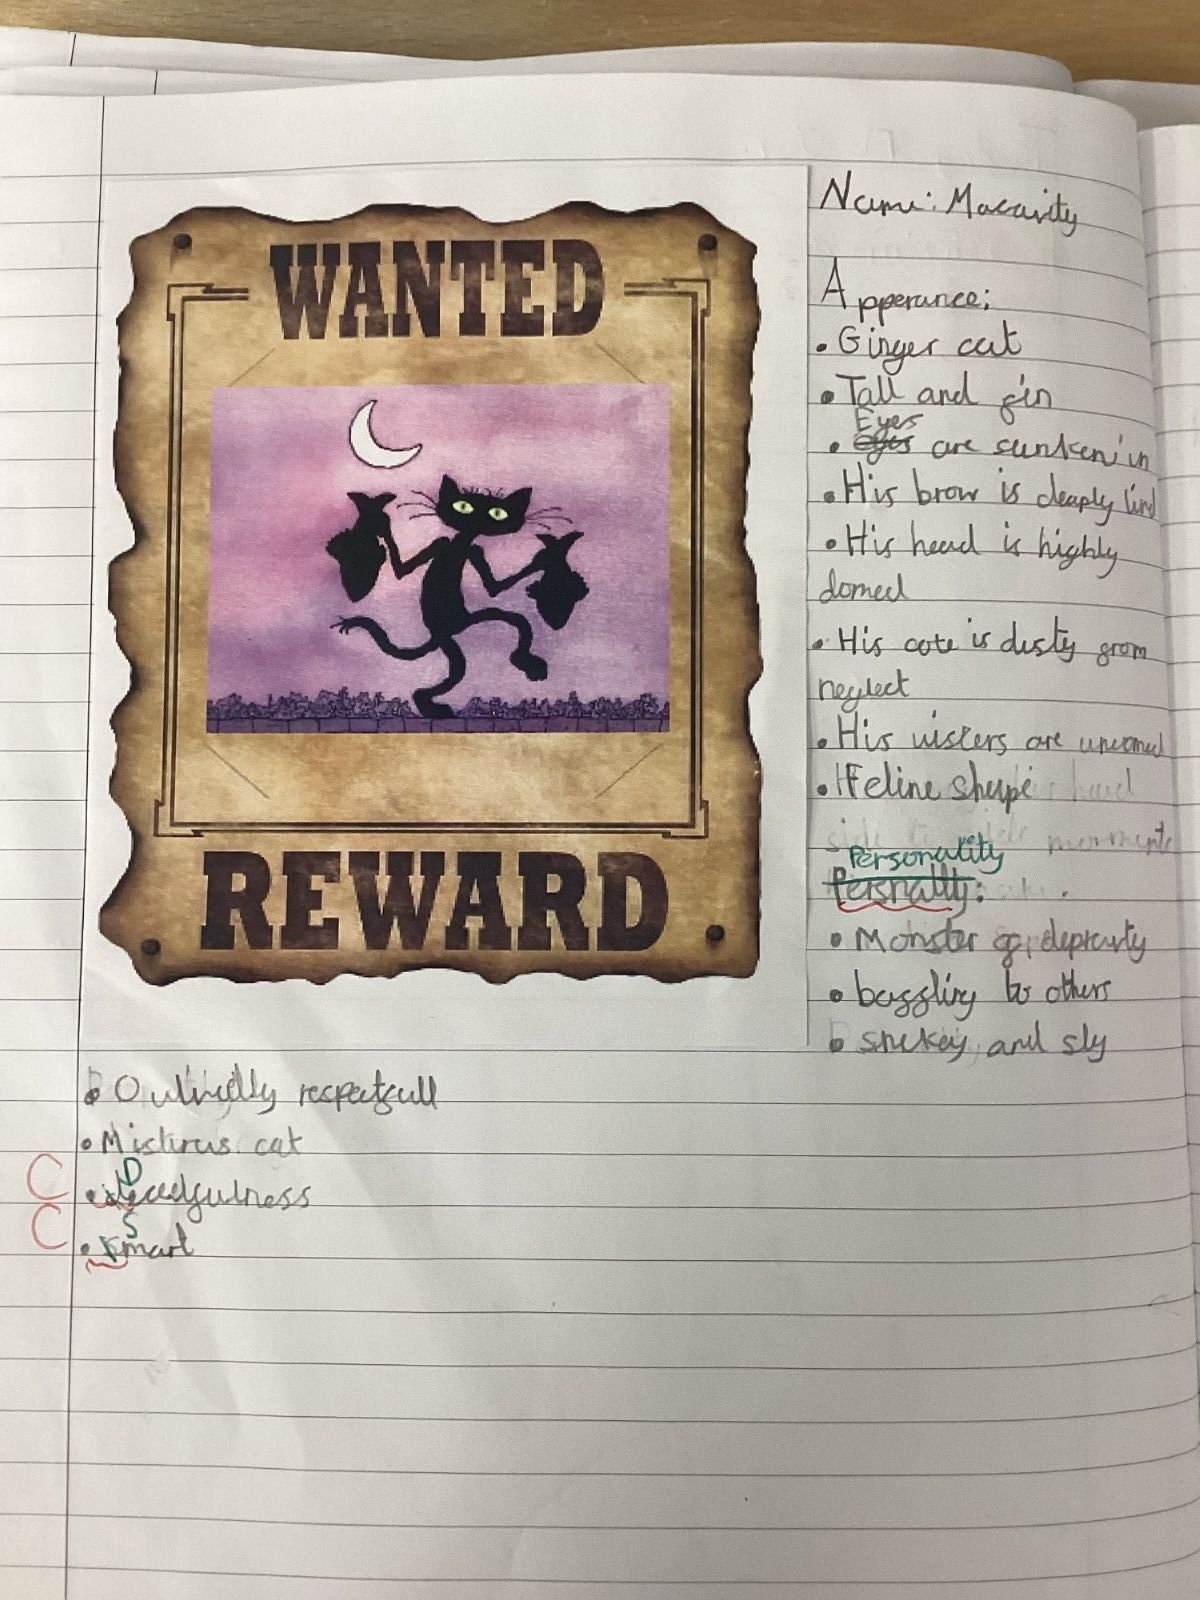 WANTED
REWARD
Name: Macavity
Apperance:
• Ginger cat
• Tall and fin
Eyes
• eyes are sunken in
• His brow is deaply lind
• His head is highly
domed
• His cote is dusty from
neglect
• His wiskers are uncomed
• Feline shape
Personality
Persnality:
• Monster of depravty
• baffling to others
• snekey and sly
• Outwardly respectfull
• Mistirus cat
C D
• deceefulness
C S
• smart